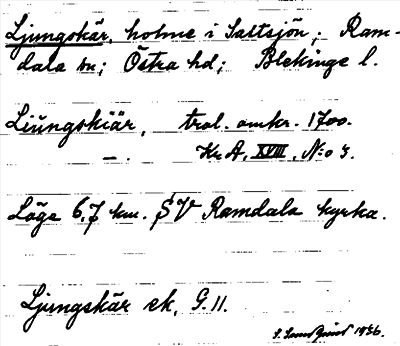 Ljungskär, holme i Saltsjön; Ram-
dala sn; Östra hd; Blekinge l.
Liŭngskiär, trol. omkr. 1700.
— . KrA, XVIII, N:o 3.
Läge 6,7 km. SV Ramdala kyrka.
Ljungskär ek, G.11.
1936.